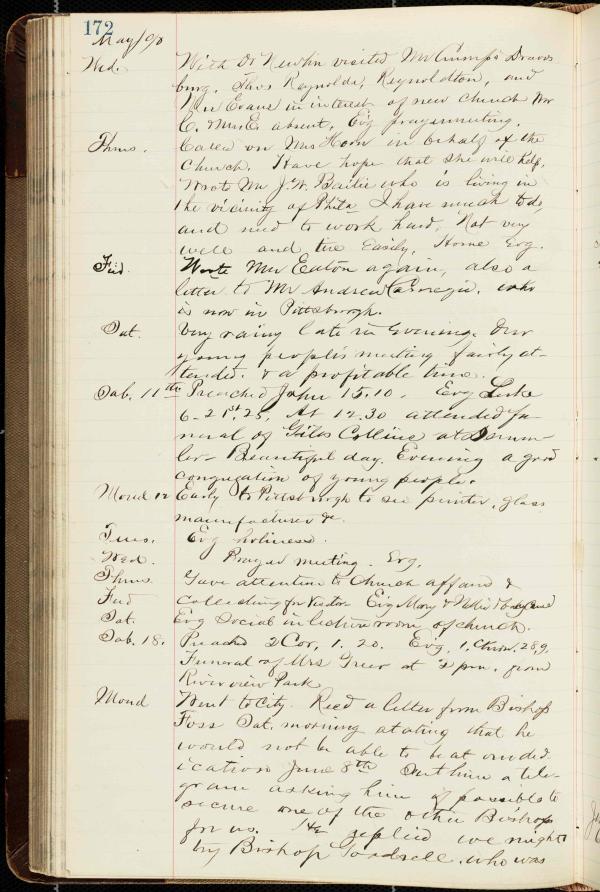 172
May/90
Wed. With Dr Newlin visited Mr Crump's Dravos
burg, Thos Reynolds, Reynoldton, and
Mr Evans in interest of new church Mr
E. & Mrs E. absent. Evg prayermeeting.
Thurs. Called on Mrs Horn in behalf of the
Church. Have hope that she will help.
Wrote Mr J. W. Bailie who is living in
the vicinity of Phila I have much to do,
and need to work hard, Not very
well and tire Easily. Home Evg.
Frid. Wrote Mr Eaton again, also a
letter to Mr Andrew Carnegie, who
is now in Pittsburgh.
Sat. Very rainy late in Evening. Our
young people's meeting fairly at-
tended, & a profitable time.
Sab. 11th Preached John 15.10. Evg Luke
6-21st,25. At 12.30 attended fu-
neral of Giles Collins at
Beautiful day. Evening a good
congregation of young people.
Mond 12 Early to Pittsburgh to see printer, glass
manufacturer &c.
Tues. Evg holiness.
Wed. Prayer meeting. Evg.
Thurs Gave attention to Church affairs &
Frid collecting for Visitor Evg Mary & Nellie
Sat. Evg Social in lecture room of church.
Sab. 18. Preach 2 Cor, 1. 20. Evg, 1. Chron. 28,9,
Funeral of Mrs Greer at 2 pm. from
Riverview Park
Mond Went to City. Recd a letter from Bishop
Foss Sat. morning stating that he
would not be able to be at our ded-
ication June 8th Sent him a tele-
gram asking him if possible to
secure one of the other Bishops
for us. He replied we might
try Bishop Goodsell, who was